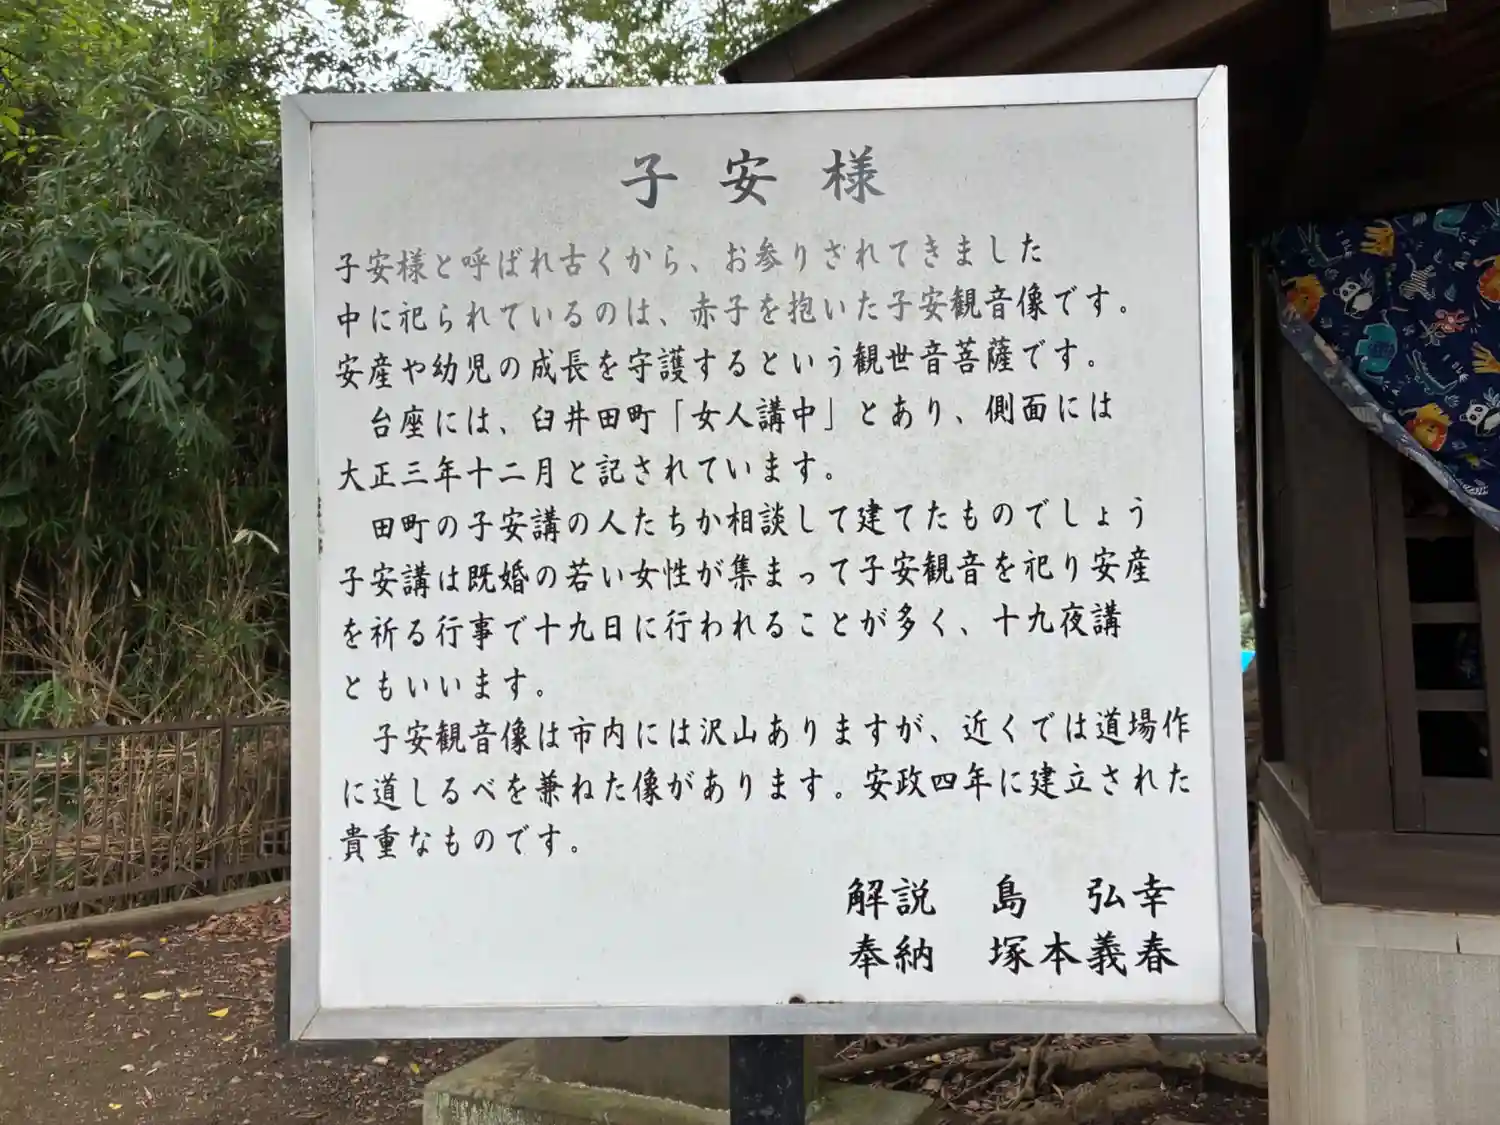 子安様
子安様と呼ばれ古くから、お参りされてきました
中に祀られているのは、赤子を抱いた子安観音像です。
安産や幼児の成長を守護するという観世音菩薩です。
台座には、臼井田町「女人講中」とあり、側面には
大正三年十二月と記されています。
田町の子安講の人たちか相談して建てたものでしょう
子安講は既婚の若い女性が集まって子安観音を祀り安産
を祈る行事で十九日に行われることが多く、十九夜講
ともいいます。
子安観音像は市内には沢山ありますが、近くでは道場作
に道しるべを兼ねた像があります。安政四年に建立された
貴重なものです。
解説　島　弘幸
奉納　塚本義春